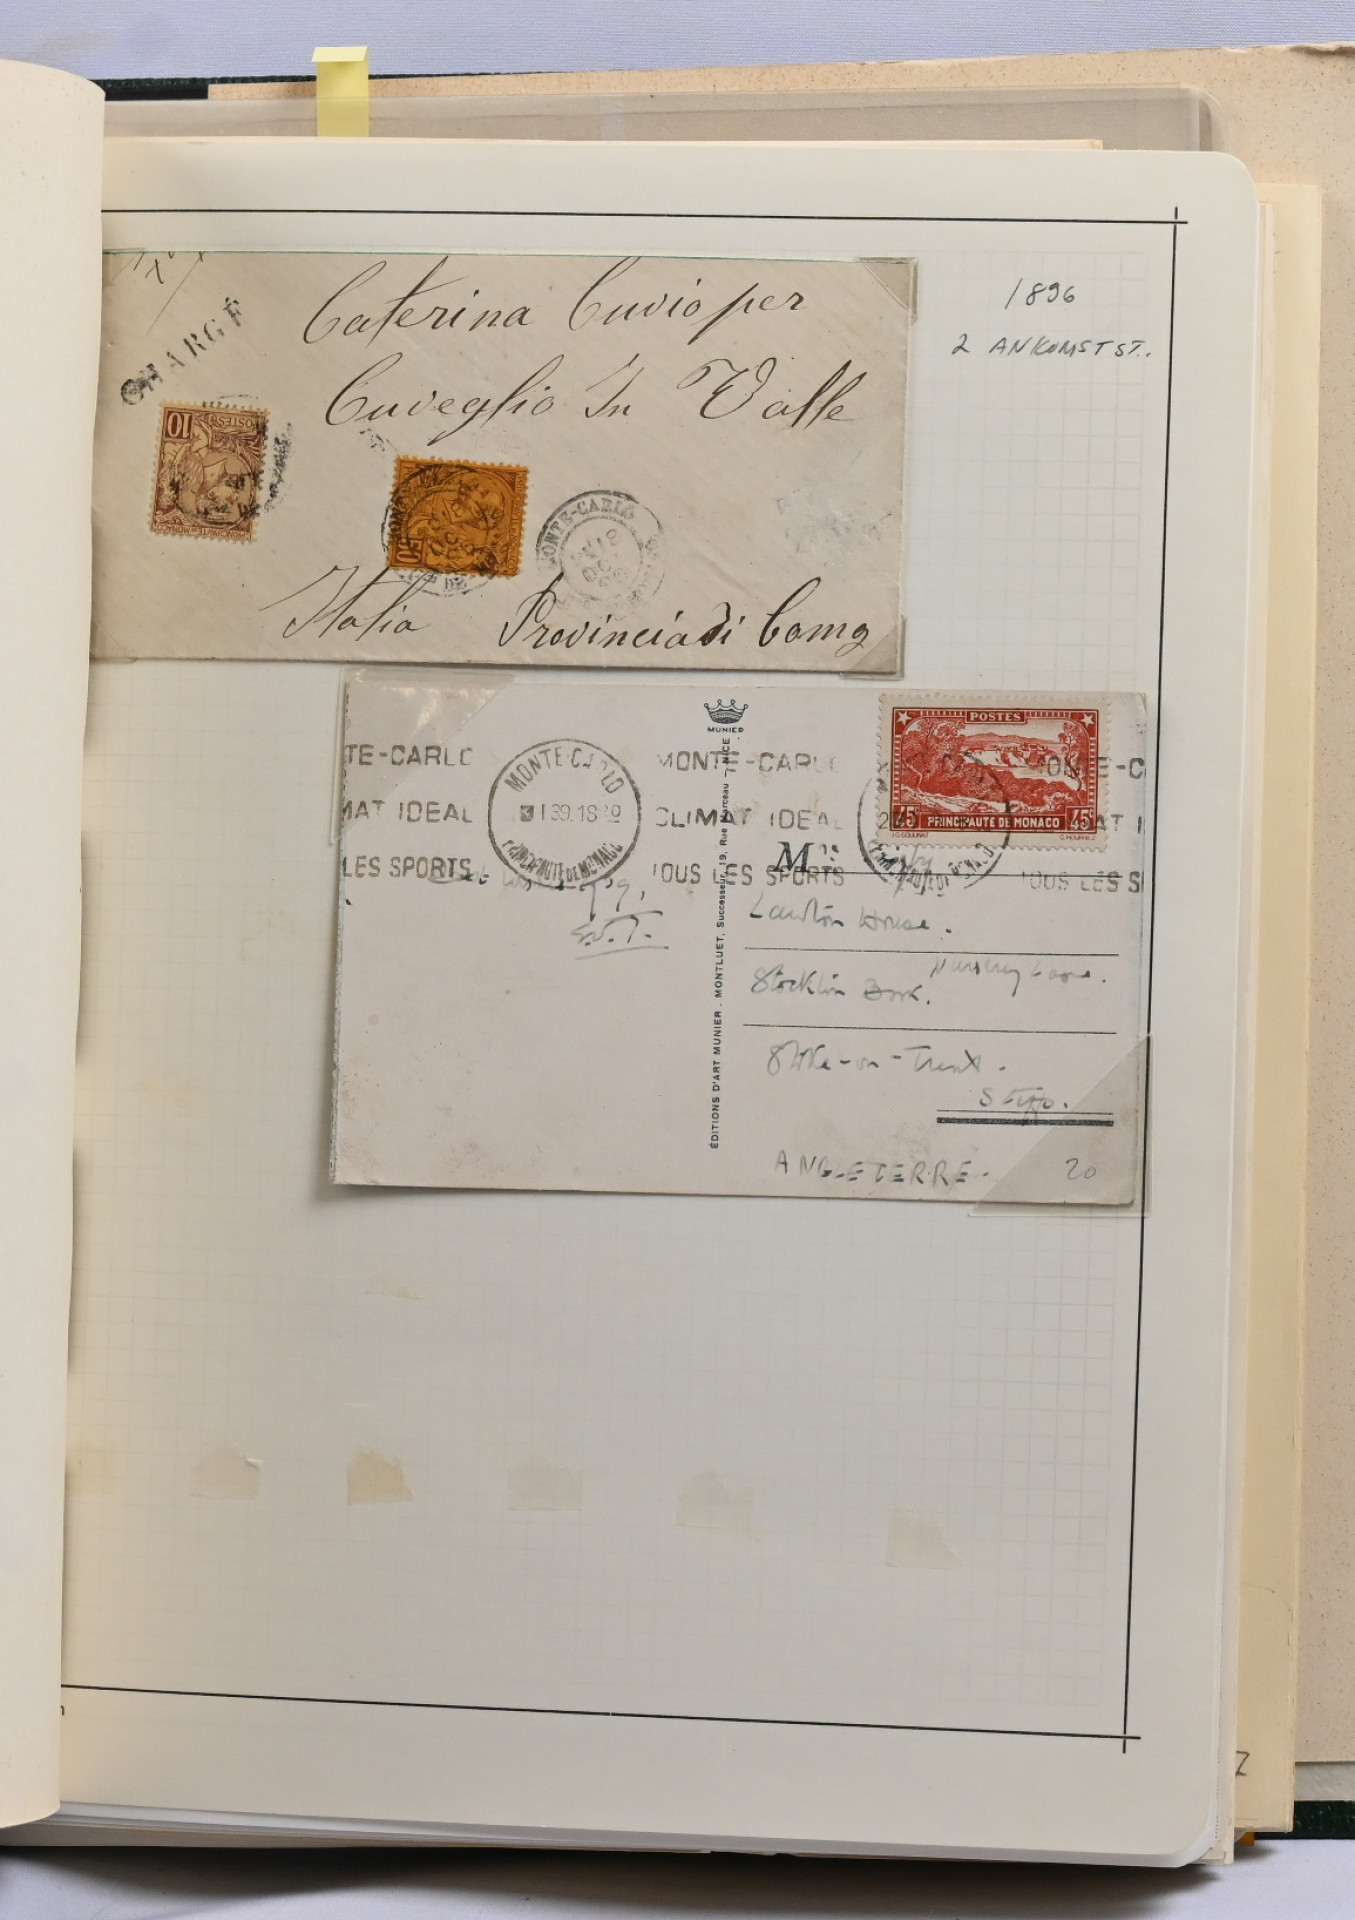 CHARGÉ
Caterina Cuvio per
Cuveglio In Valle
10
POSTES
PRINCIPAUTÉ DE MONACO
50
MONTE-CARLO
Italia Provincia di Como
1896
2 ANKOMSTST.
MUNIER
TE-CARLO
MAT IDEAL
LES SPORTS
MONTE-CARLO
PRINCIPAUTÉ DE MONACO
MONTE-CARLO
CLIMAT IDEAL
TOUS LES SPORTS
POSTES
45c PRINCIPAUTE DE MONACO 45c
TOUS LES S
ÉDITIONS D'ART MUNIER . MONTLUET, Successeur, 19, Rue Marceau - NICE
M
Lawton House.
Nursery Lane.
Stockton Brook.
Stoke-on-Trent.
Staffs.
ANGLETERRE.
20